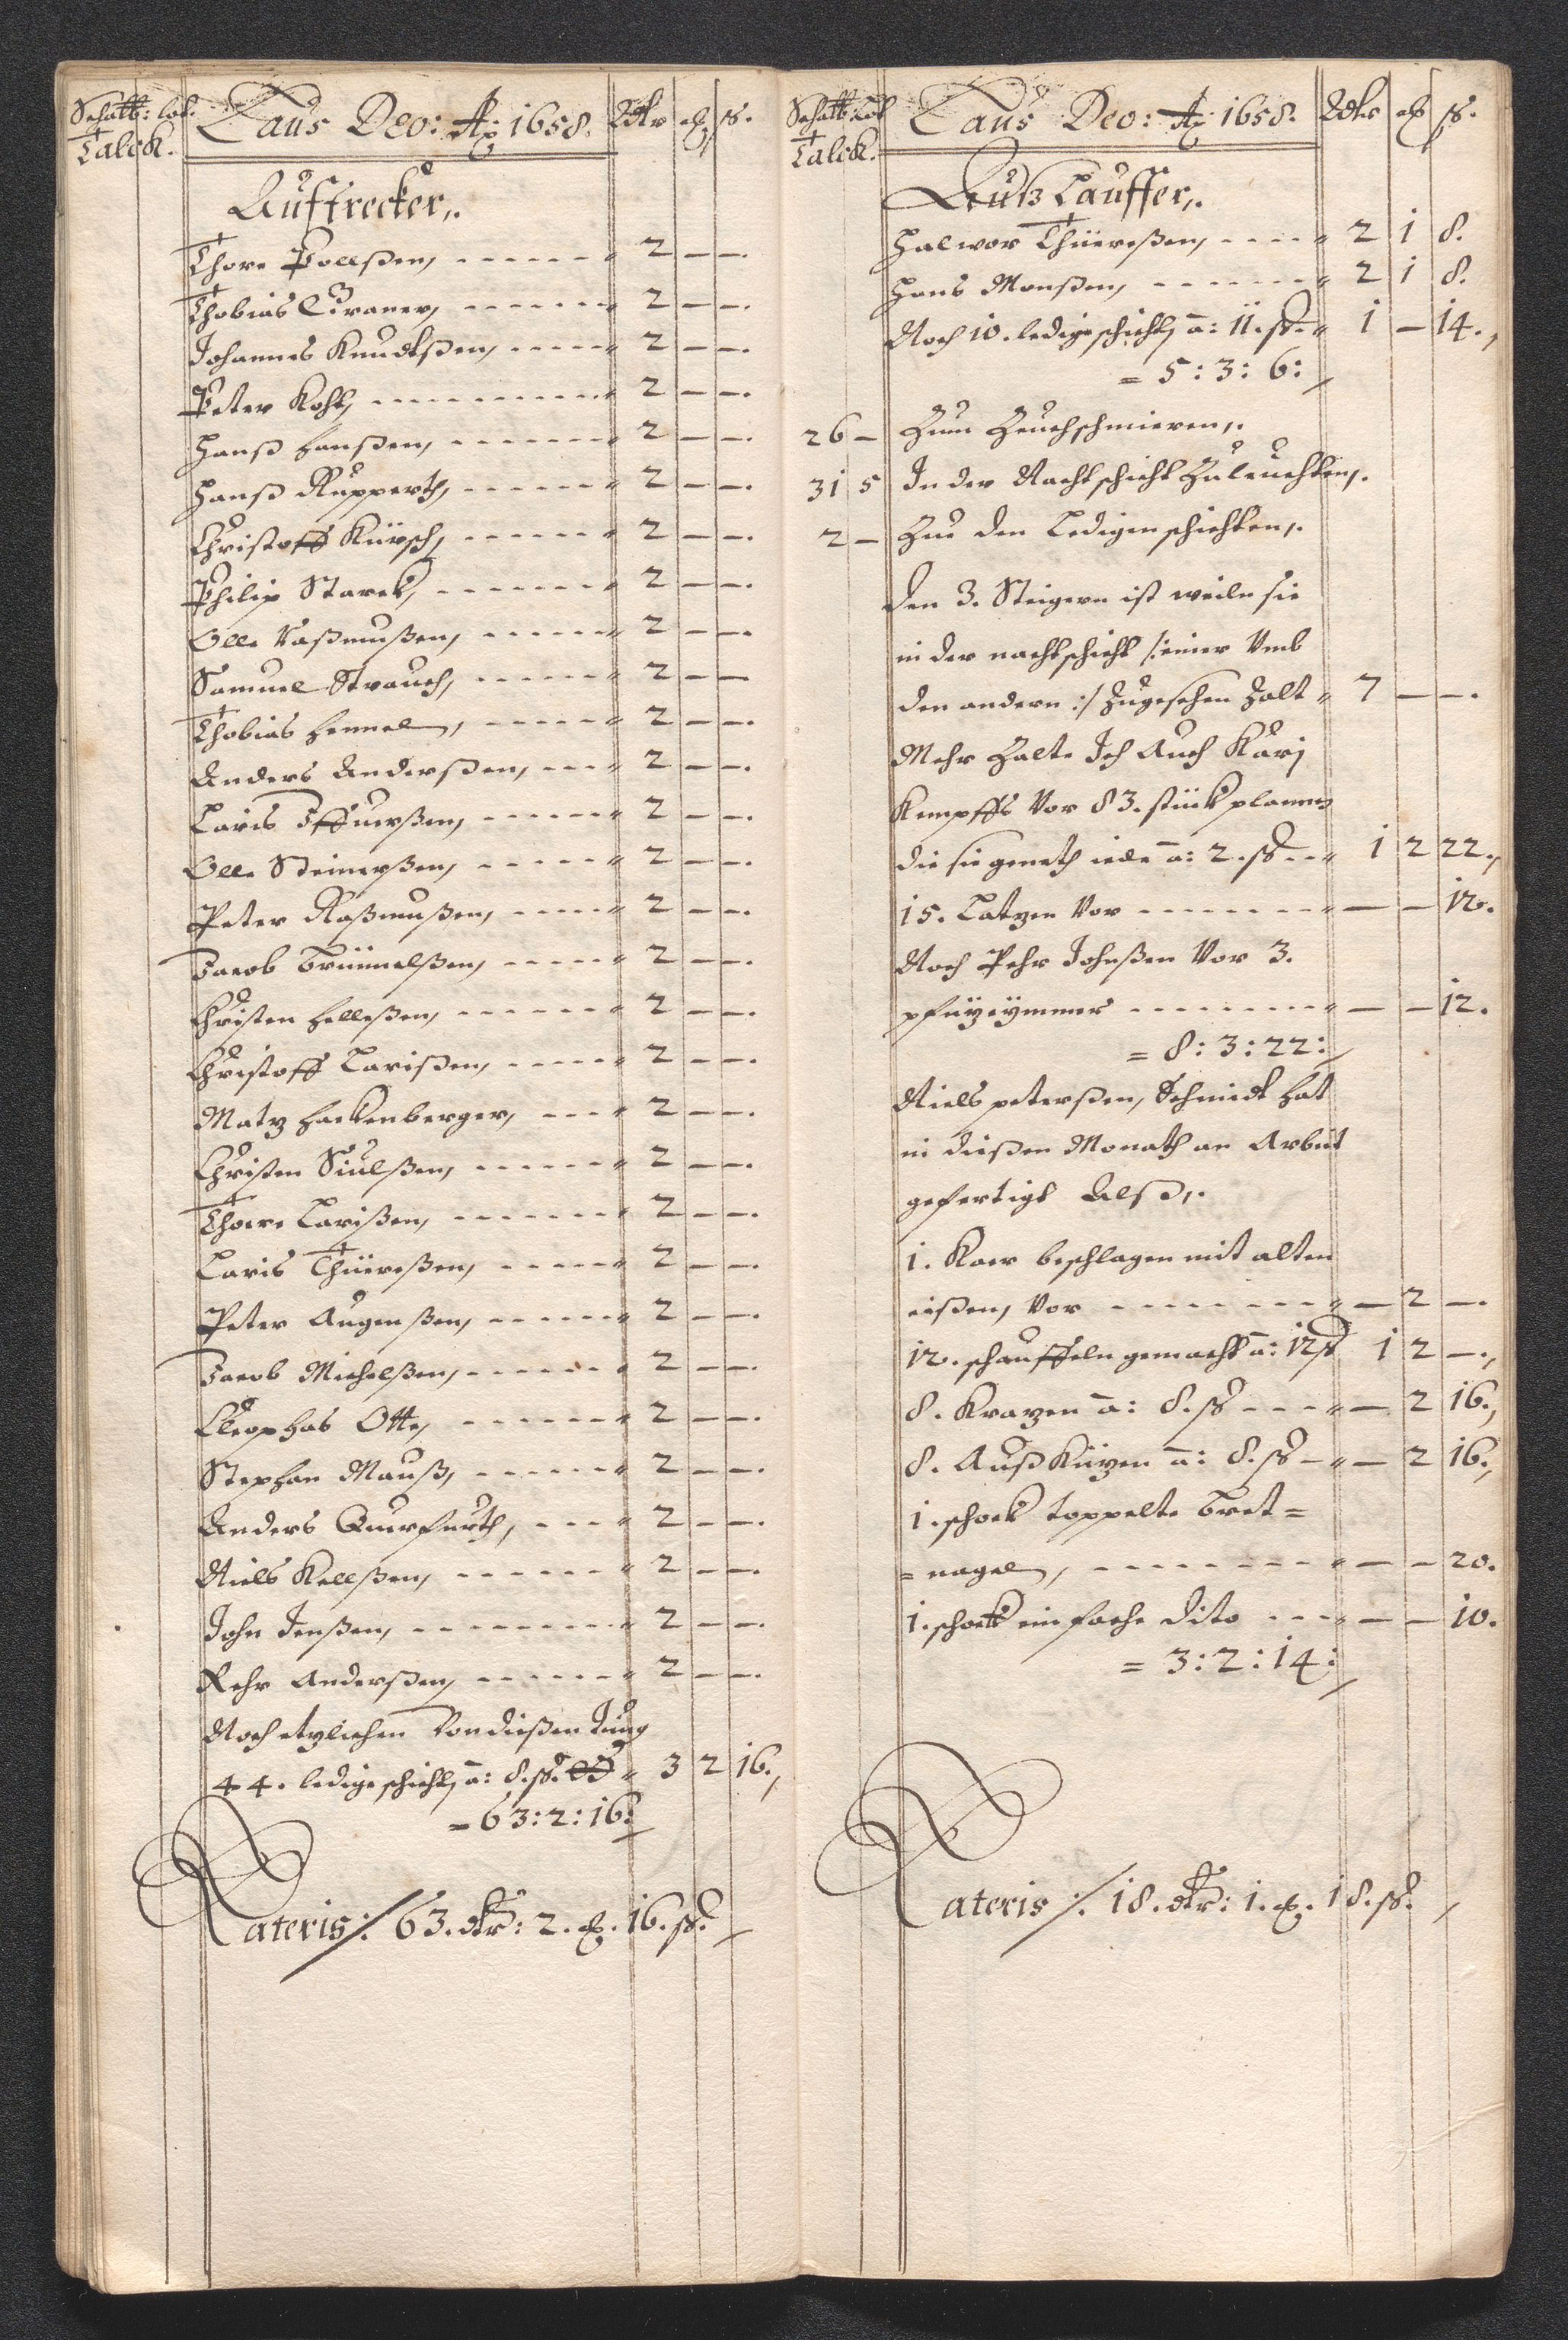 Schatt: lod.
Talck.
Laus Deo: Ao 1658. Rdlr ß.
Auffrecker,.
Thore Pollßen, - - - - - - 2 — —.
Thobias Craner, - - - - - - 2 — —.
Johannes Knudtßen, - - - - - 2 — —.
Peter Kohl, - - - - - - - - - 2 — —.
Hanß Hanßen, - - - - - - - 2 — —.
Hanß Rupperth, - - - - - - 2 — —.
Christoff Kürsch, - - - - - - 2 — —.
Philip Starck, - - - - - - - 2 — —.
Olle Raßmußen, - - - - - - 2 — —.
Samuel Strauch, - - - - - - 2 — —.
Thobias Hemel, - - - - - 2 — —.
Anders Anderßen, - - - 2 — —.
Laris Iffuerßen, - - - - - - 2 — —.
Olle Steinerßen, - - - - - 2 — —.
Peter Raßmußen, - - - - - 2 — —.
Jacob Trünnelßen, - - - - - 2 — —.
Christen Helleßen, - - - - - - 2 — —.
Christoff Larißen, - - - - - 2 — —.
Matz Hackenberger, - - - 2 — —.
Christen Siulßen, - - - - - - 2 — —.
Thoere Larißen, - - - - - - - 2 — —.
Laris Thüereßen, - - - - - 2 — —.
Peter Augenßen, - - - - - - 2 — —.
Jacob Michelßen, - - - - - - 2 — —.
Cleophas Otte, - - - - - - - 2 — —.
Stephan Mauß, - - - - - - 2 — —.
Anders Querfurth, - - - 2 — —.
Niels Kellßen, - - - - - - - 2 — —.
John Jenßen, - - - - - - - - 2 — —.
Pehr Anderßen, - - - - - - 2 — —.
Noch etzlichen Von dießen Jung
44. ledige schicht, a: 8. ß. 3 2 16.,
= 63: 2: 16:
Lateris:/: 63. dlr: 2. 16. ß.
Schatt: lod
Talck.
Laus Deo: Ao 1658. Rdlr ß.
Auß Lauffer,.
Halwor Thüereßen, - - - - 2 1 8.
Hans Monßen, - - - - - - - 2 1 8.
Noch 10. ledige schicht, a: 11. ß. 1 — 14.,
= 5: 3: 6:
26 — Zum Zeuchschmieren,.
31 5 In der Nachtschicht Zuleuchten,.
2 — Zue den Ledigen schichten,.
Den 3. Steigern ist weiln sie
in der nachtschicht /: einer Vmb
den andern :/ Zugesehen Zalt 7 — —.
Mehr Zalte Ich Auch Kari
Kempffs Vor 83. stück planner
die sie geneth iede a: 2. ß - - 1 2 22.,
15. Latzen Vor - - - - - - - — — 12.
Noch Pehr Johnßen Vor 3.
pfützeymmer - - - - - - - - — — 12.
= 8: 3: 22:
Niels peterßen, Schmidt hat
in dießen Monath an Arbeit
gefertigt Alß,.
1. Karr beschlagen mit alten
eißen, Vor - - - - - - - - — 2 —.
12. schauffeln gemacht a: 12 ß 1 2 —.,
8. Kratzen a: 8. ß - - - - — 2 16.,
8. Auß Kützen a: 8. ß - — 2 16.,
1. schock toppelte bret=
=nagel, - - - - - - - - — — 20.
1. schock einfache Dito - - - — — 10.
= 3: 2: 14:
Lateris:/: 18. dlr: 1. 18. ß.